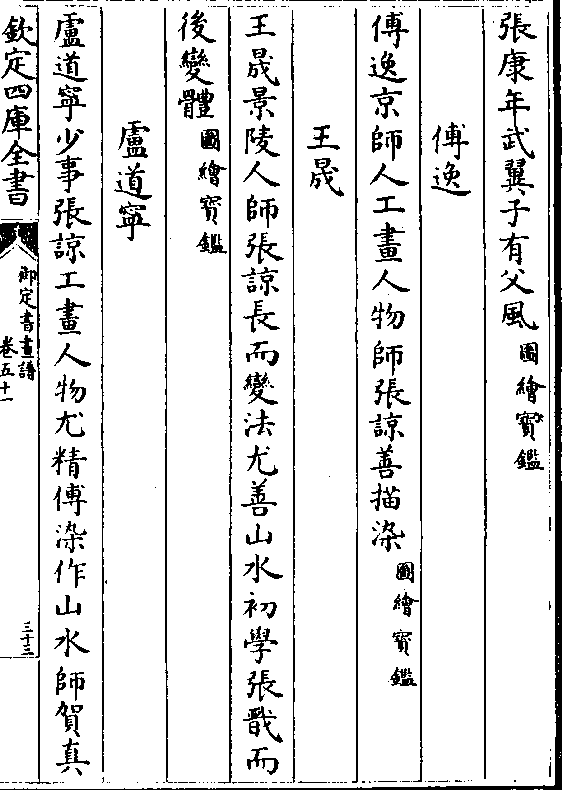 張康年武翼子有父風圖繪寳鑑
傅逸
傅逸京師人工畫人物師張諒善描染圖繪寳鑑
王晟
王晟景陵人師張諒長而變法尤善山水初學張戬而
後變體圖繪寳鑑
盧道寧
盧道寧少事張諒工畫人物尤精傅染作山水師賀真
欽定四庫全書
御定書畫譜
卷五十一
三十三